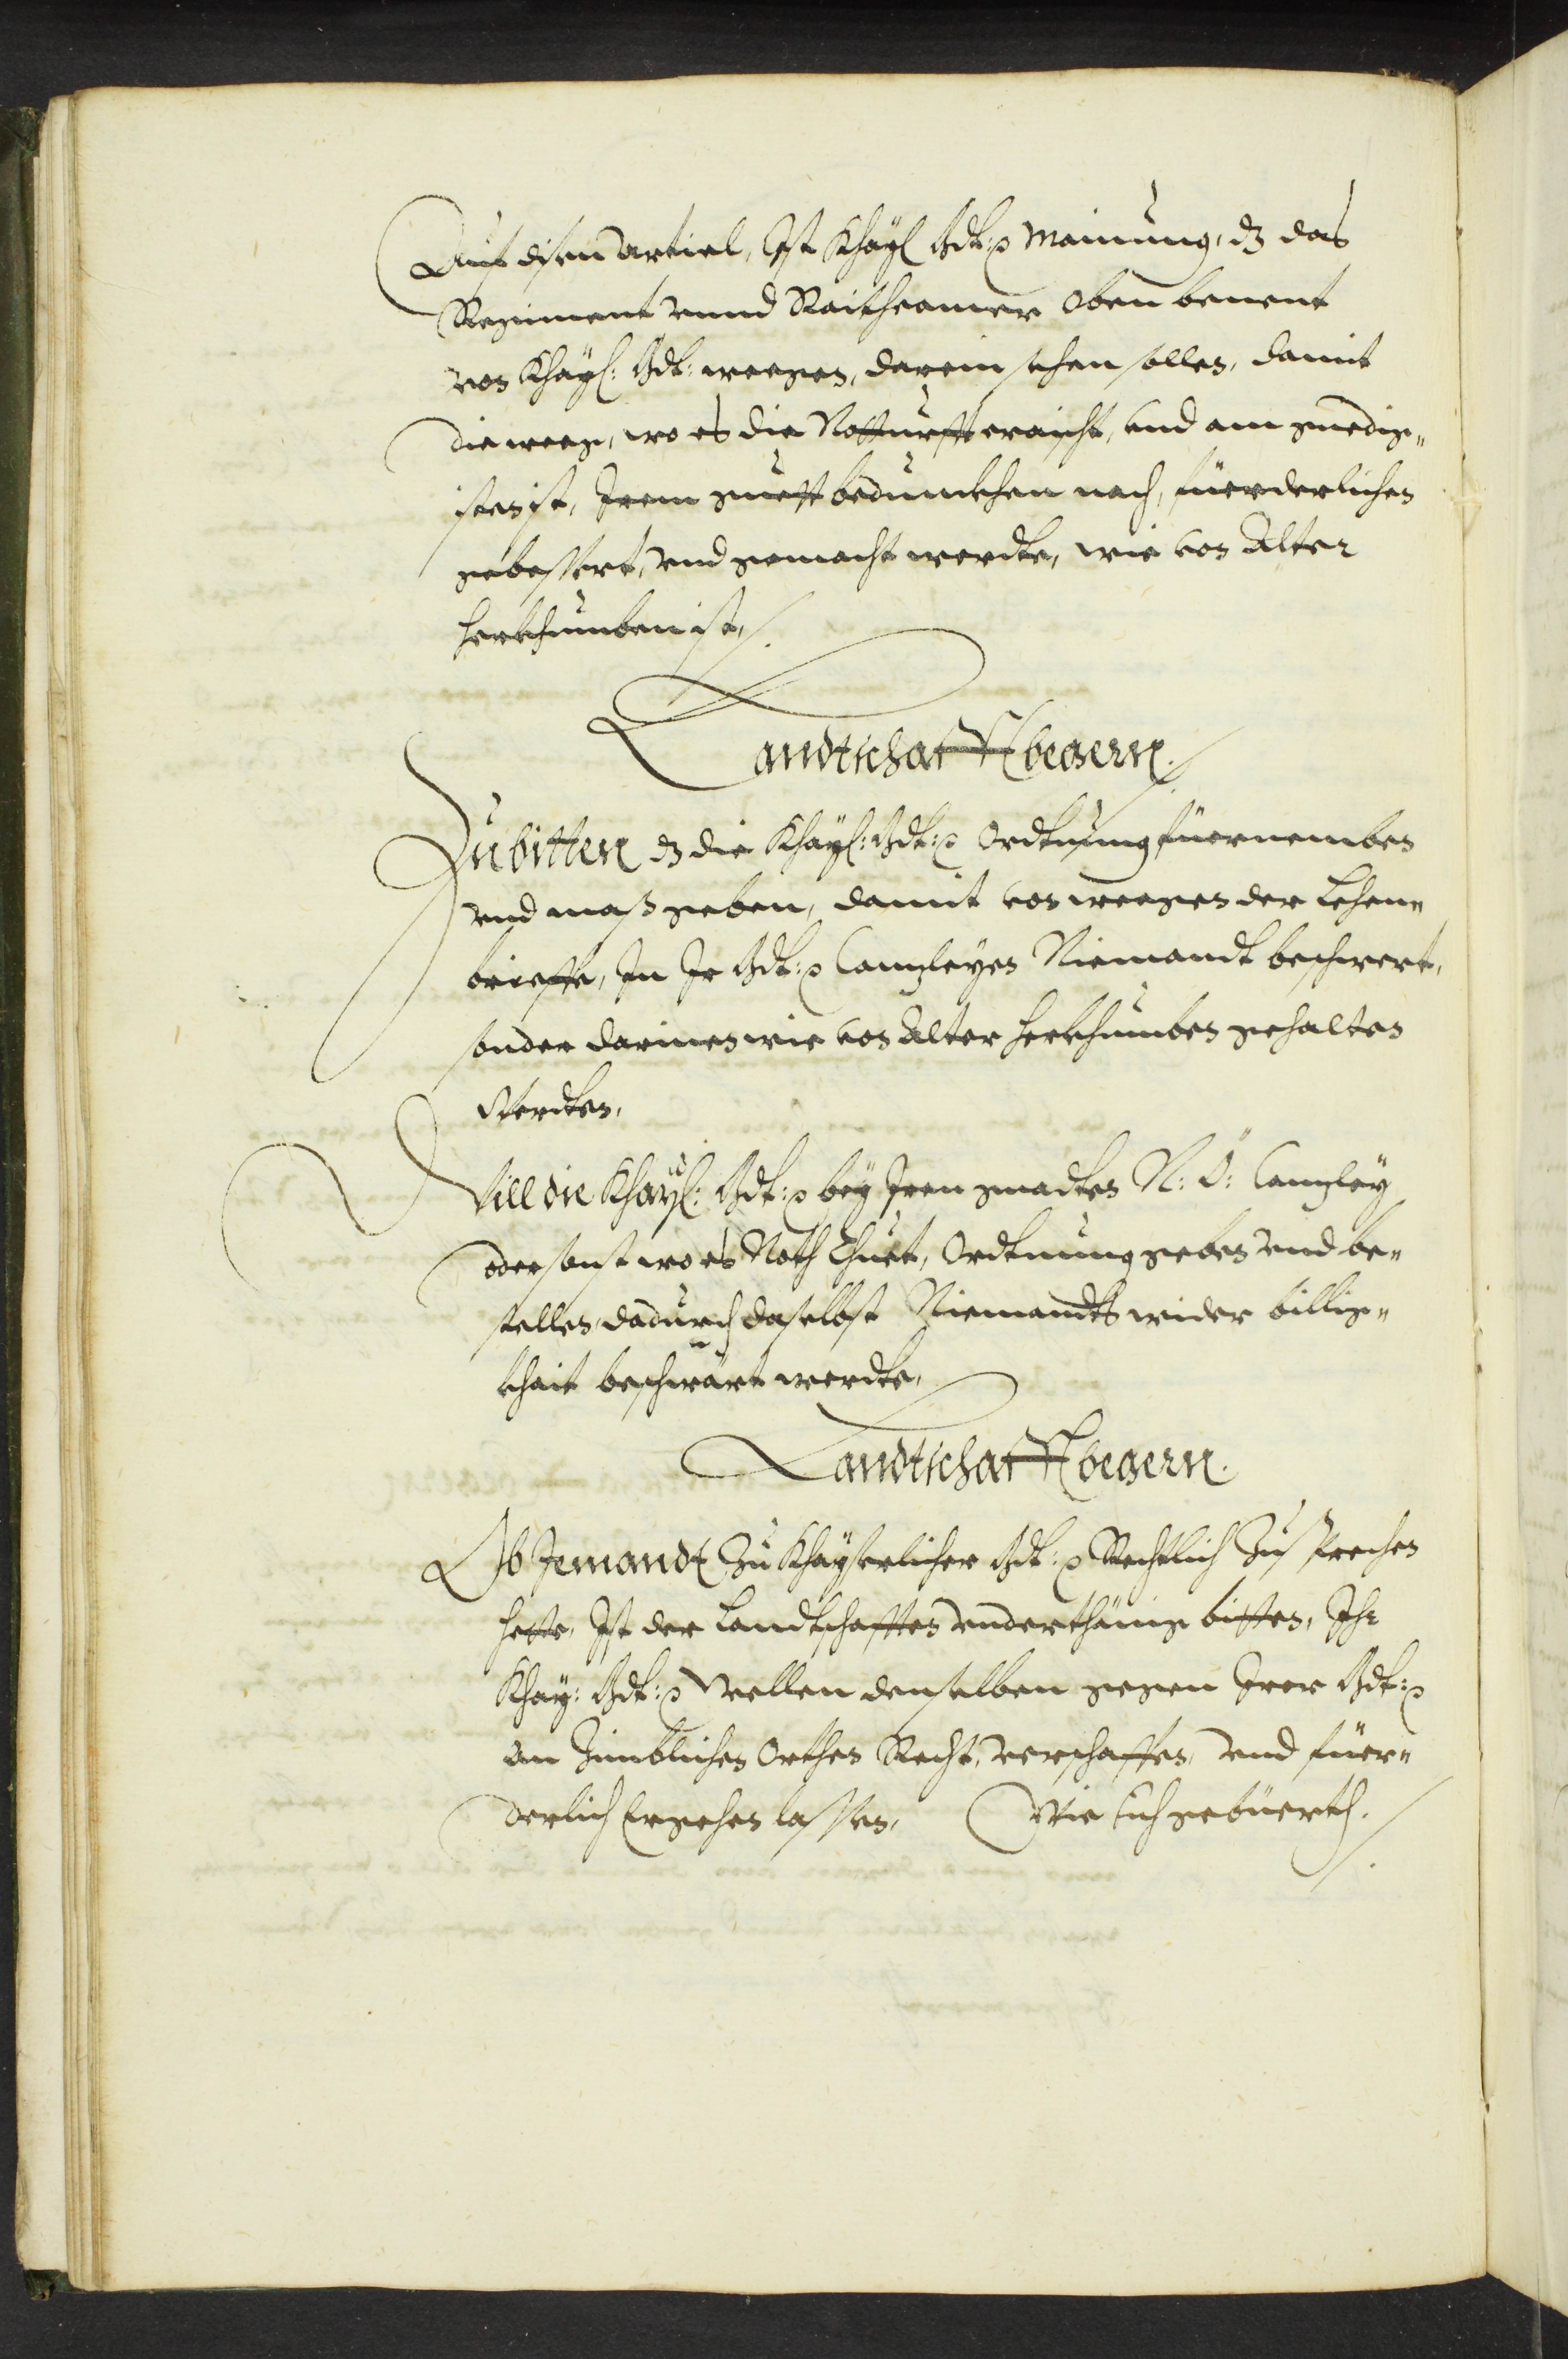 Auf disen Articl, Ist Khayl Mdt: Mainung, dz das
Regiment vnnd Raitcamer oben benent
von Khayl: Mdt: weegen, darein sehen sollen, damit
die weeg, wo es die Notturfft eraischt, vnd am gnedig„
isten ist, Irem guett bedunckhen nach, fürderlichen
gebessert, vnd gemacht werdte, wie von Alter
herkhumben ist,
Landtschafft begern.
Zu bitten dz die Khayl: Mdt: Ordtnung fürnemben
vnd mass geben, damit von weegen der Lehen„
brieffe, In Ir Mdt: Canzleyen Niemandt beschwert,
sonder darinen wie von Alter herkhumben gehalten
Werdten,
Will die Khayl: Mdt: bey Iren gnadten N: Ö: Canzley
oder sonst wo es Noth thuet, Ordtnung geben vnd be„
stellen, dadurch daselbst Niemandts wider billig„
khait beschwärt werdte,
Landtschafft begern.
Ob Jemandt zu Khayserlicher Mdt: Rechtlich zu sprechen
hette, Ist der Landtschafften vnderthänig bitten, Ihr
Khay: Mdt: Wellen denselben gegen Irer Mdt:
an zimblichen Orthen Recht, verschaffen, vnd füer„
derlich Ergehen lassen, Wie sich gebüerth.